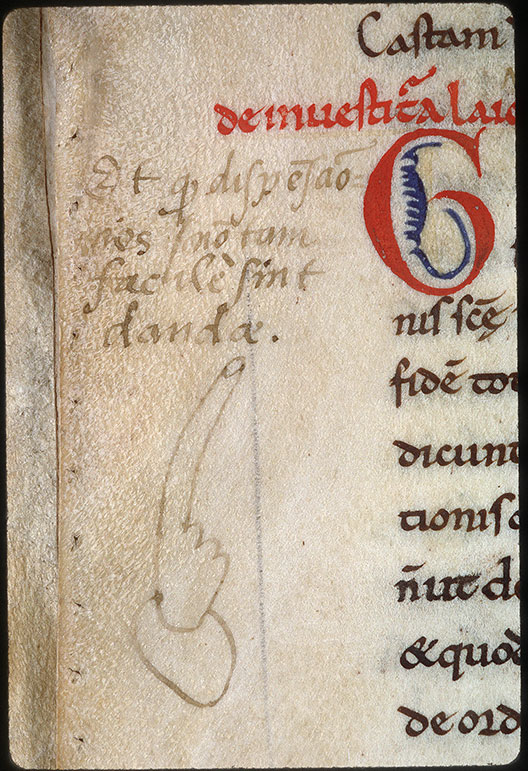 Castam
de inuestit̃a laic
Et qd̃ dispẽsaõ=
nes nõ tam
facilè sint
dandæ.
G
nis scę̃
fidẽ tot
dicunt
tionis
ñ ut de
& quod
de ord